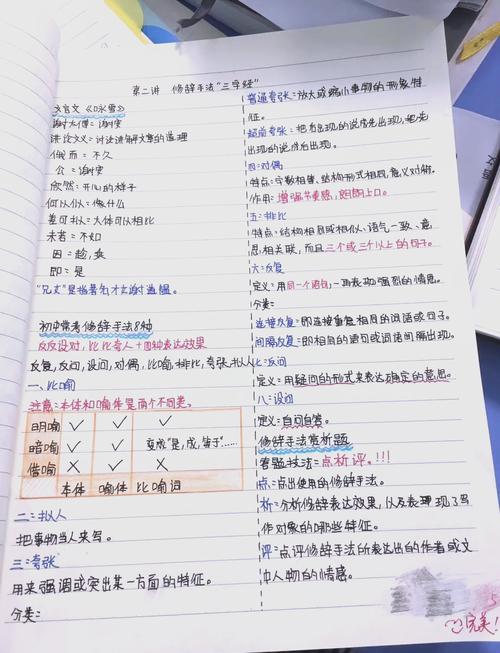 第二讲 修辞手法“三字经”
文言文《咏雪》
谢太傅：谢安
讲论文义：讨论讲解文章的道理
俄而＝不久
公：谢安
欣然：开心的样子
何以似：像什么
差可拟：大体可以相比
未若＝不如
因：趁，乘
即：是
“兄女”是指著名才女谢道韫。
初中常考修辞手法8种
反反设对，比比夸人＋四种表达效果
反复，反问，设问，对偶，比喻，排比，夸张，拟人
一、比喻
注意：本体和喻体是两个不同类。
明喻 ✓ ✓ ✓
暗喻 ✓ ✓ 变成“是，成，等于”……
借喻 ✗ ✓ ✗
本体 喻体 比喻词
二：拟人
把事物当人来写。
三：夸张
用来强调或突出某一方面的特征。
分类：
普通夸张：放大或缩小事物的形象特
征。
超前夸张：把后出现的说常先出现，把先
出现的说成后出现。
四：对偶
特点：字数相等、结构形式相同，意义对称。
作用：增强节奏感，朗朗上口。
五：排比
特点：结构相同或相似、语气一致、意
思相关联，而且三个或三个以上的句子。
六：反复
定义：用同一个语句，一再表现强烈的情思。
分类：
连接反复：即连接重复相同的词语或句子。
间隔反复：即相同的语句或词语间隔出现。
七：反问
定义：用疑问的形式来表达确定的意思。
八：设问
定义：自问自答。
修辞手法赏析题
答题技法：点析评。!!!
点：点出使用的修辞手法。
析：分析修辞表达效果，以及表理现了写
作对象的哪些特征。
评：点评修辞手法所表达出的作者或文
中人物的情感。
完美！